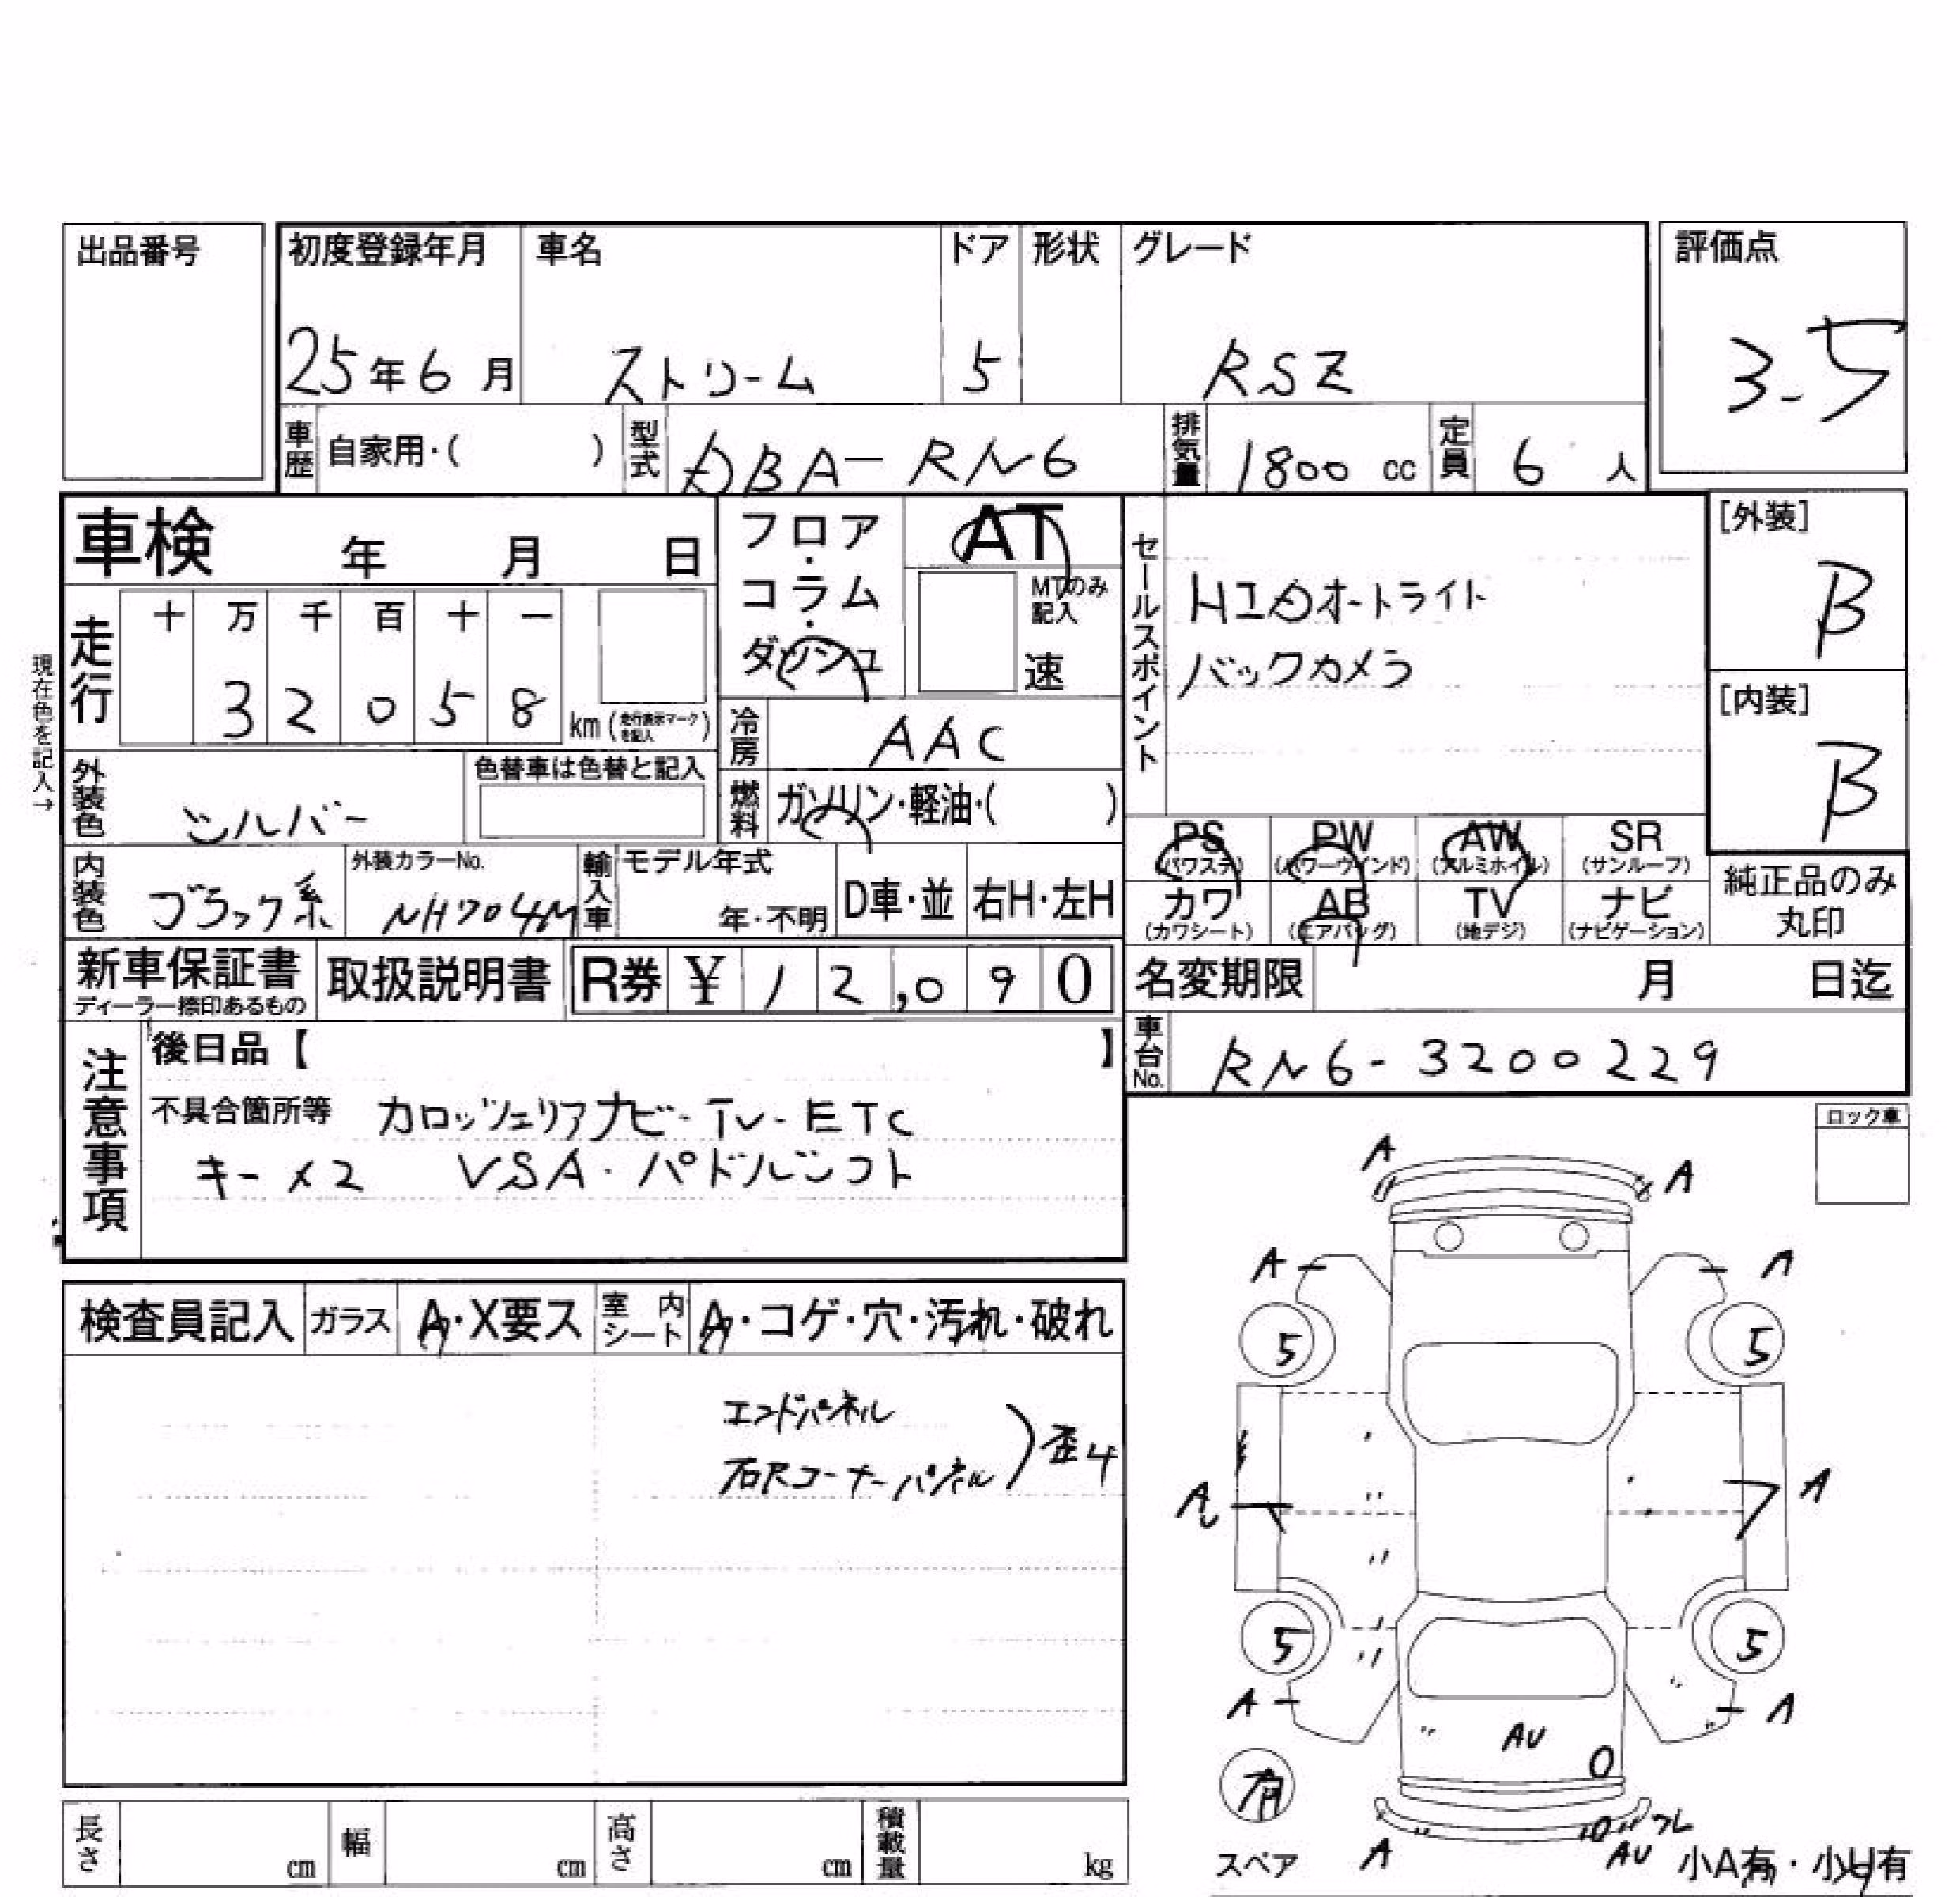 出品番号
初度登録年月 車名 ドア 形状 グレード 評価点
25年6月 ストリーム 5 RSZ 3-5
車歴 自家用・( ) 型式 DBA-RN6 排気量 1800 cc 定員 6 人
車検 年 月 日
フロア・コラム・ダッシュ
AT
MTのみ記入
速
セールスポイント
HIDオートライト
バックカメラ
[外装]
B
[内装]
B
現在色を記入→
走行 十 万 千 百 十 一
3 2 0 5 8 km (走行表示マークを記入)
冷房 AAC
外装色 シルバー
色替車は色替と記入
燃料 ガソリン・軽油・( )
PS (パワステ) PW (パワーウインド) AW (アルミホイル) SR (サンルーフ)
カワ (カワシート) AB (エアバッグ) TV (地デジ) ナビ (ナビゲーション)
純正品のみ丸印
内装色 ブラック系 外装カラーNo. NH704M 輸入車 モデル年式 年・不明 D車・並 右H・左H
新車保証書 ディーラー捺印あるもの 取扱説明書 R券 ¥ 12,090
名変期限 月 日迄
車台No. RN6-3200229
注意事項
後日品【 】
不具合箇所等 カロッツェリアナビ-TV-ETC
キー×2 VSA・パドルシフト
ロック車
検査員記入 ガラス A・X要ス 室内シート A・コゲ・穴・汚れ・破れ
エンドパネル
右Rコーナーパネル
)歪4
A A
A A
5 5
A A
5 5
A A
AU
有
スペア
A AU ワレ
小A有・小U有
長さ cm 幅 cm 高さ cm 積載量 kg